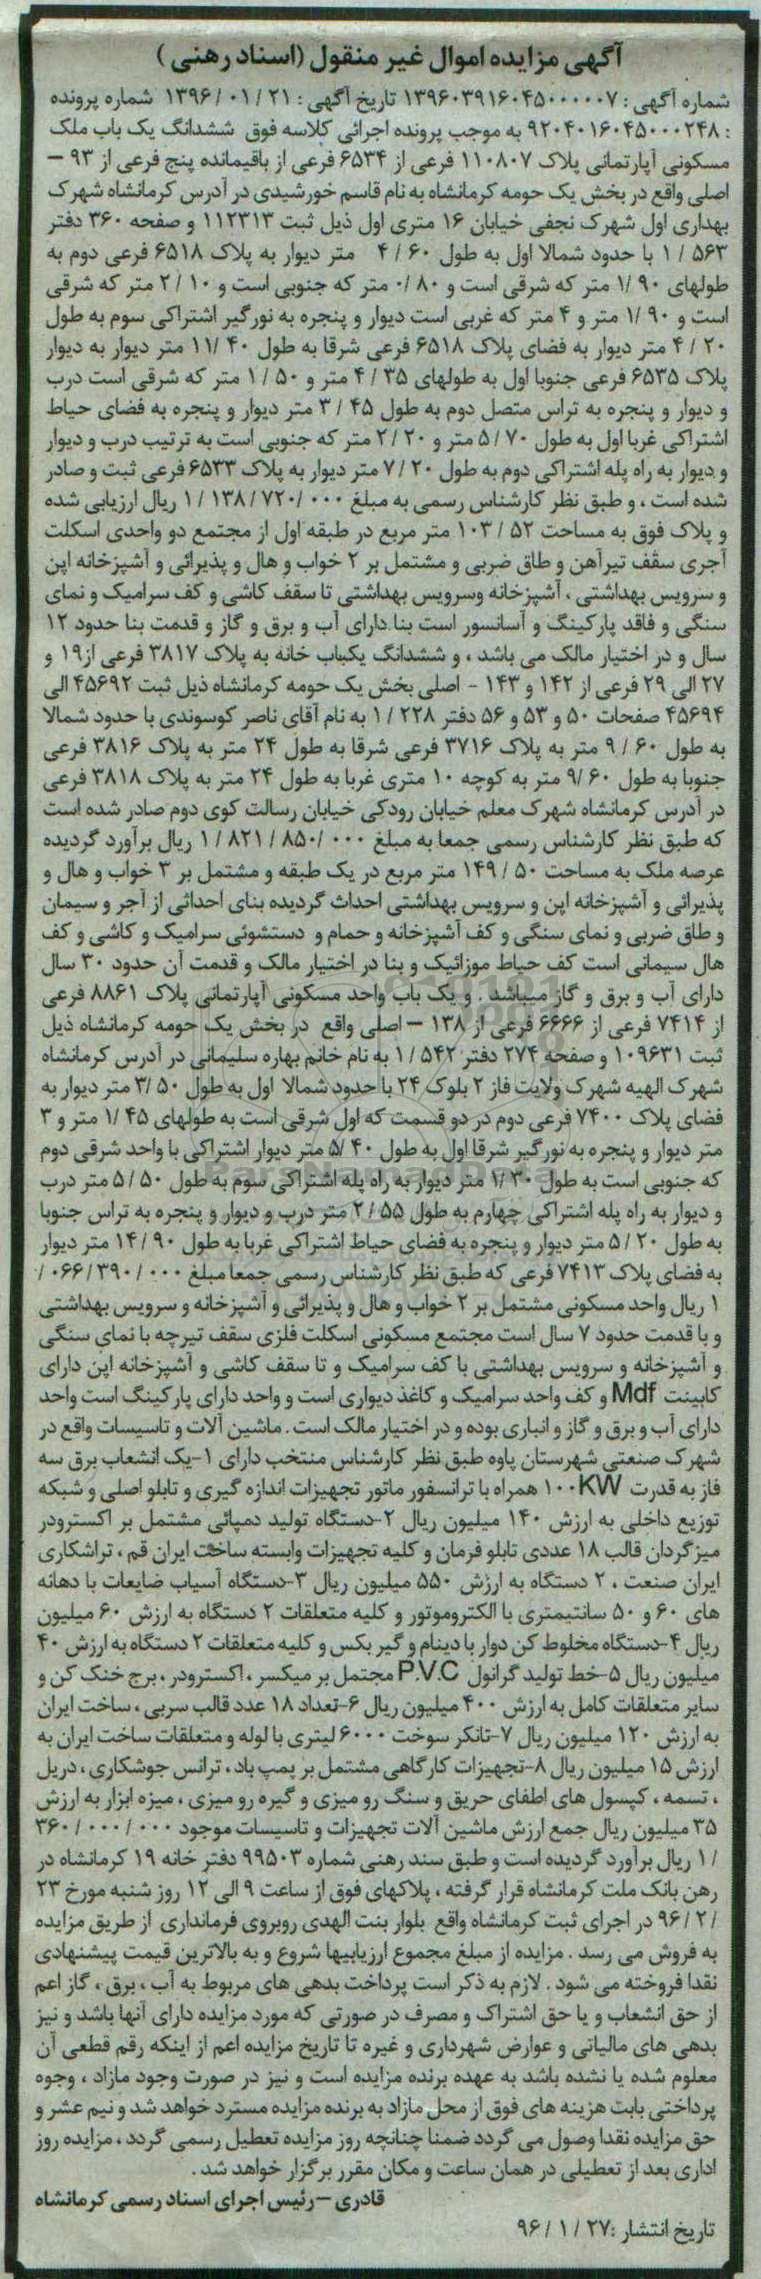 آگهی مزایده اموال غیر منقول (اسناد رهنی)
شماره آگهی : ۱۳۹۶۰۳۹۱۶۰۴۵۰۰۰۰۰۷ تاریخ آگهی : ۲۱ / ۰۱ / ۱۳۹۶ شماره پرونده
: ۹۲۰۴۰۱۶۰۴۵۰۰۰۲۴۸ به موجب پرونده اجرائی کلاسه فوق ششدانگ یک باب ملک
مسکونی آپارتمانی پلاک ۱۱۰۸۰۷ فرعی از ۶۵۳۴ فرعی از باقیمانده پنج فرعی از ۹۳ –
اصلی واقع در بخش یک حومه کرمانشاه به نام قاسم خورشیدی در آدرس کرمانشاه شهرک
بهداری اول شهرک نجفی خیابان ۱۶ متری اول ذیل ثبت ۱۱۲۳۱۳ و صفحه ۳۶۰ دفتر
۵۶۳ / ۱ با حدود شمالا اول به طول ۶۰ / ۴ متر دیوار به پلاک ۶۵۱۸ فرعی دوم به
طولهای ۹۰ /۱ متر که شرقی است و ۸۰ /۰ متر که جنوبی است و ۱۰ / ۲ متر که شرقی
است و ۹۰ /۱ متر و ۴ متر که غربی است دیوار و پنجره به نورگیر اشتراکی سوم به طول
۲۰ / ۴ متر دیوار به فضای پلاک ۶۵۱۸ فرعی شرقا به طول ۴۰ /۱۱ متر دیوار به دیوار
پلاک ۶۵۳۵ فرعی جنوبا اول به طولهای ۳۵ / ۴ متر و ۵۰ / ۱ متر که شرقی است درب
و دیوار و پنجره به تراس متصل دوم به طول ۴۵ / ۳ متر دیوار و پنجره به فضای حیاط
اشتراکی غربا اول به طول ۷۰ / ۵ متر و ۲۰ / ۲ متر که جنوبی است به ترتیب درب و دیوار
و دیوار به راه پله اشتراکی دوم به طول ۲۰ / ۷ متر دیوار به پلاک ۶۵۳۳ فرعی ثبت و صادر
شده است ، و طبق نظر کارشناس رسمی به مبلغ ۰۰۰ /۷۲۰ / ۱۳۸ / ۱ ریال ارزیابی شده
و پلاک فوق به مساحت ۵۲ / ۱۰۳ متر مربع در طبقه اول از مجتمع دو واحدی اسکلت
آجری سقف تیرآهن و طاق ضربی و مشتمل بر ۲ خواب و هال و پذیرائی و آشپزخانه اپن
و سرویس بهداشتی ، آشپزخانه وسرویس بهداشتی تا سقف کاشی و کف سرامیک و نمای
سنگی و فاقد پارکینگ و آسانسور است بنا دارای آب و برق و گاز و قدمت بنا حدود ۱۲
سال و در اختیار مالک می باشد ، و ششدانگ یکباب خانه به پلاک ۳۸۱۷ فرعی از ۱۹ و
۲۷ الی ۲۹ فرعی از ۱۴۲ و ۱۴۳ - اصلی بخش یک حومه کرمانشاه ذیل ثبت ۴۵۶۹۲ الی
۴۵۶۹۴ صفحات ۵۰ و ۵۳ و ۵۶ دفتر ۲۲۸ / ۱ به نام آقای ناصر کوسوندی با حدود شمالا
به طول ۶۰ / ۹ متر به پلاک ۳۷۱۶ فرعی شرقا به طول ۲۴ متر به پلاک ۳۸۱۶ فرعی
جنوبا به طول ۶۰ /۹ متر به کوچه ۱۰ متری غربا به طول ۲۴ متر به پلاک ۳۸۱۸ فرعی
در آدرس کرمانشاه شهرک معلم خیابان رودکی خیابان رسالت کوی دوم صادر شده است
که طبق نظر کارشناس رسمی جمعا به مبلغ ۰۰۰ /۸۵۰ / ۸۲۱ / ۱ ریال برآورد گردیده
عرصه ملک به مساحت ۵۰ / ۱۴۹ متر مربع در یک طبقه و مشتمل بر ۳ خواب و هال و
پذیرائی و آشپزخانه اپن و سرویس بهداشتی احداث گردیده بنای احداثی از آجر و سیمان
و طاق ضربی و نمای سنگی و کف آشپزخانه و حمام و دستشوئی سرامیک و کاشی و کف
هال سیمانی است کف حیاط موزائیک و بنا در اختیار مالک و قدمت آن حدود ۳۰ سال
دارای آب و برق و گاز میباشد . و یک باب واحد مسکونی آپارتمانی پلاک ۸۸۶۱ فرعی
از ۷۴۱۴ فرعی از ۶۶۶۶ فرعی از ۱۳۸ – اصلی واقع در بخش یک حومه کرمانشاه ذیل
ثبت ۱۰۹۶۳۱ و صفحه ۲۷۴ دفتر ۵۴۲ / ۱ به نام خانم بهاره سلیمانی در آدرس کرمانشاه
شهرک الهیه شهرک ولایت فاز ۲ بلوک ۲۴ با حدود شمالا اول به طول ۵۰ /۳ متر دیوار به
فضای پلاک ۷۴۰۰ فرعی دوم در دو قسمت که اول شرقی است به طولهای ۴۵ /۱ متر و ۳
متر دیوار و پنجره به نورگیر شرقا اول به طول ۴۰ /۵ متر دیوار اشتراکی با واحد شرقی دوم
که جنوبی است به طول ۳۰ /۱ متر دیوار به راه پله اشتراکی سوم به طول ۵۰ / ۵ متر درب
و دیوار به راه پله اشتراکی چهارم به طول ۵۵ / ۲ متر درب و دیوار و پنجره به تراس جنوبا
به طول ۲۰ / ۵ متر دیوار و پنجره به فضای حیاط اشتراکی غربا به طول ۹۰ / ۱۴ متر دیوار
به فضای پلاک ۷۴۱۳ فرعی که طبق نظر کارشناس رسمی جمعا مبلغ ۰۰۰ / ۳۹۰ / ۰۶۶ /
۱ ریال واحد مسکونی مشتمل بر ۲ خواب و هال و پذیرائی و آشپزخانه و سرویس بهداشتی
و با قدمت حدود ۷ سال است مجتمع مسکونی اسکلت فلزی سقف تیرچه با نمای سنگی
و آشپزخانه و سرویس بهداشتی با کف سرامیک و تا سقف کاشی و آشپزخانه اپن دارای
کابینت Mdf و کف واحد سرامیک و کاغذ دیواری است و واحد دارای پارکینگ است واحد
دارای آب و برق و گاز و انباری بوده و در اختیار مالک است . ماشین آلات و تاسیسات واقع در
شهرک صنعتی شهرستان پاوه طبق نظر کارشناس منتخب دارای ۱-یک انشعاب برق سه
فاز به قدرت ۱۰۰KW همراه با ترانسفور ماتور تجهیزات اندازه گیری و تابلو اصلی و شبکه
توزیع داخلی به ارزش ۱۴۰ میلیون ریال ۲-دستگاه تولید دمپائی مشتمل بر اکسترودر
میزگردان قالب ۱۸ عددی تابلو فرمان و کلیه تجهیزات وابسته ساخت ایران قم ، تراشکاری
ایران صنعت ، ۲ دستگاه به ارزش ۵۵۰ میلیون ریال ۳-دستگاه آسیاب ضایعات با دهانه
های ۶۰ و ۵۰ سانتیمتری با الکتروموتور و کلیه متعلقات ۲ دستگاه به ارزش ۶۰ میلیون
ریال ۴-دستگاه مخلوط کن دوار با دینام و گیر بکس و کلیه متعلقات ۲ دستگاه به ارزش ۴۰
میلیون ریال ۵-خط تولید گرانول P.V.C مجتمل بر میکسر ، اکسترودر ، برج خنک کن و
سایر متعلقات کامل به ارزش ۴۰۰ میلیون ریال ۶-تعداد ۱۸ عدد قالب سربی ، ساخت ایران
به ارزش ۱۲۰ میلیون ریال ۷-تانکر سوخت ۶۰۰۰ لیتری با لوله و متعلقات ساخت ایران به
ارزش ۱۵ میلیون ریال ۸-تجهیزات کارگاهی مشتمل بر پمپ باد ، ترانس جوشکاری ، دریل
، تسمه ، کپسول های اطفای حریق و سنگ رو میزی و گیره رو میزی ، میزه ابزار به ارزش
۳۵ میلیون ریال جمع ارزش ماشین آلات تجهیزات و تاسیسات موجود ۰۰۰ / ۰۰۰ / ۳۶۰
/ ۱ ریال برآورد گردیده است و طبق سند رهنی شماره ۹۹۵۰۳ دفتر خانه ۱۹ کرمانشاه در
رهن بانک ملت کرمانشاه قرار گرفته ، پلاکهای فوق از ساعت ۹ الی ۱۲ روز شنبه مورخ ۲۳
/ ۲ / ۹۶ در اجرای ثبت کرمانشاه واقع بلوار بنت الهدی روبروی فرمانداری از طریق مزایده
به فروش می رسد . مزایده از مبلغ مجموع ارزیابیها شروع و به بالاترین قیمت پیشنهادی
نقدا فروخته می شود . لازم به ذکر است پرداخت بدهی های مربوط به آب ، برق ، گاز اعم
از حق انشعاب و یا حق اشتراک و مصرف در صورتی که مورد مزایده دارای آنها باشد و نیز
بدهی های مالیاتی و عوارض شهرداری و غیره تا تاریخ مزایده اعم از اینکه رقم قطعی آن
معلوم شده یا نشده باشد به عهده برنده مزایده است و نیز در صورت وجود مازاد ، وجوه
پرداختی بابت هزینه های فوق از محل مازاد به برنده مزایده مسترد خواهد شد و نیم عشر و
حق مزایده نقدا وصول می گردد ضمنا چنانچه روز مزایده تعطیل رسمی گردد ، مزایده روز
اداری بعد از تعطیلی در همان ساعت و مکان مقرر برگزار خواهد شد .
قادری – رئیس اجرای اسناد رسمی کرمانشاه
تاریخ انتشار : ۲۷ / ۱ / ۹۶
ParsNamadData